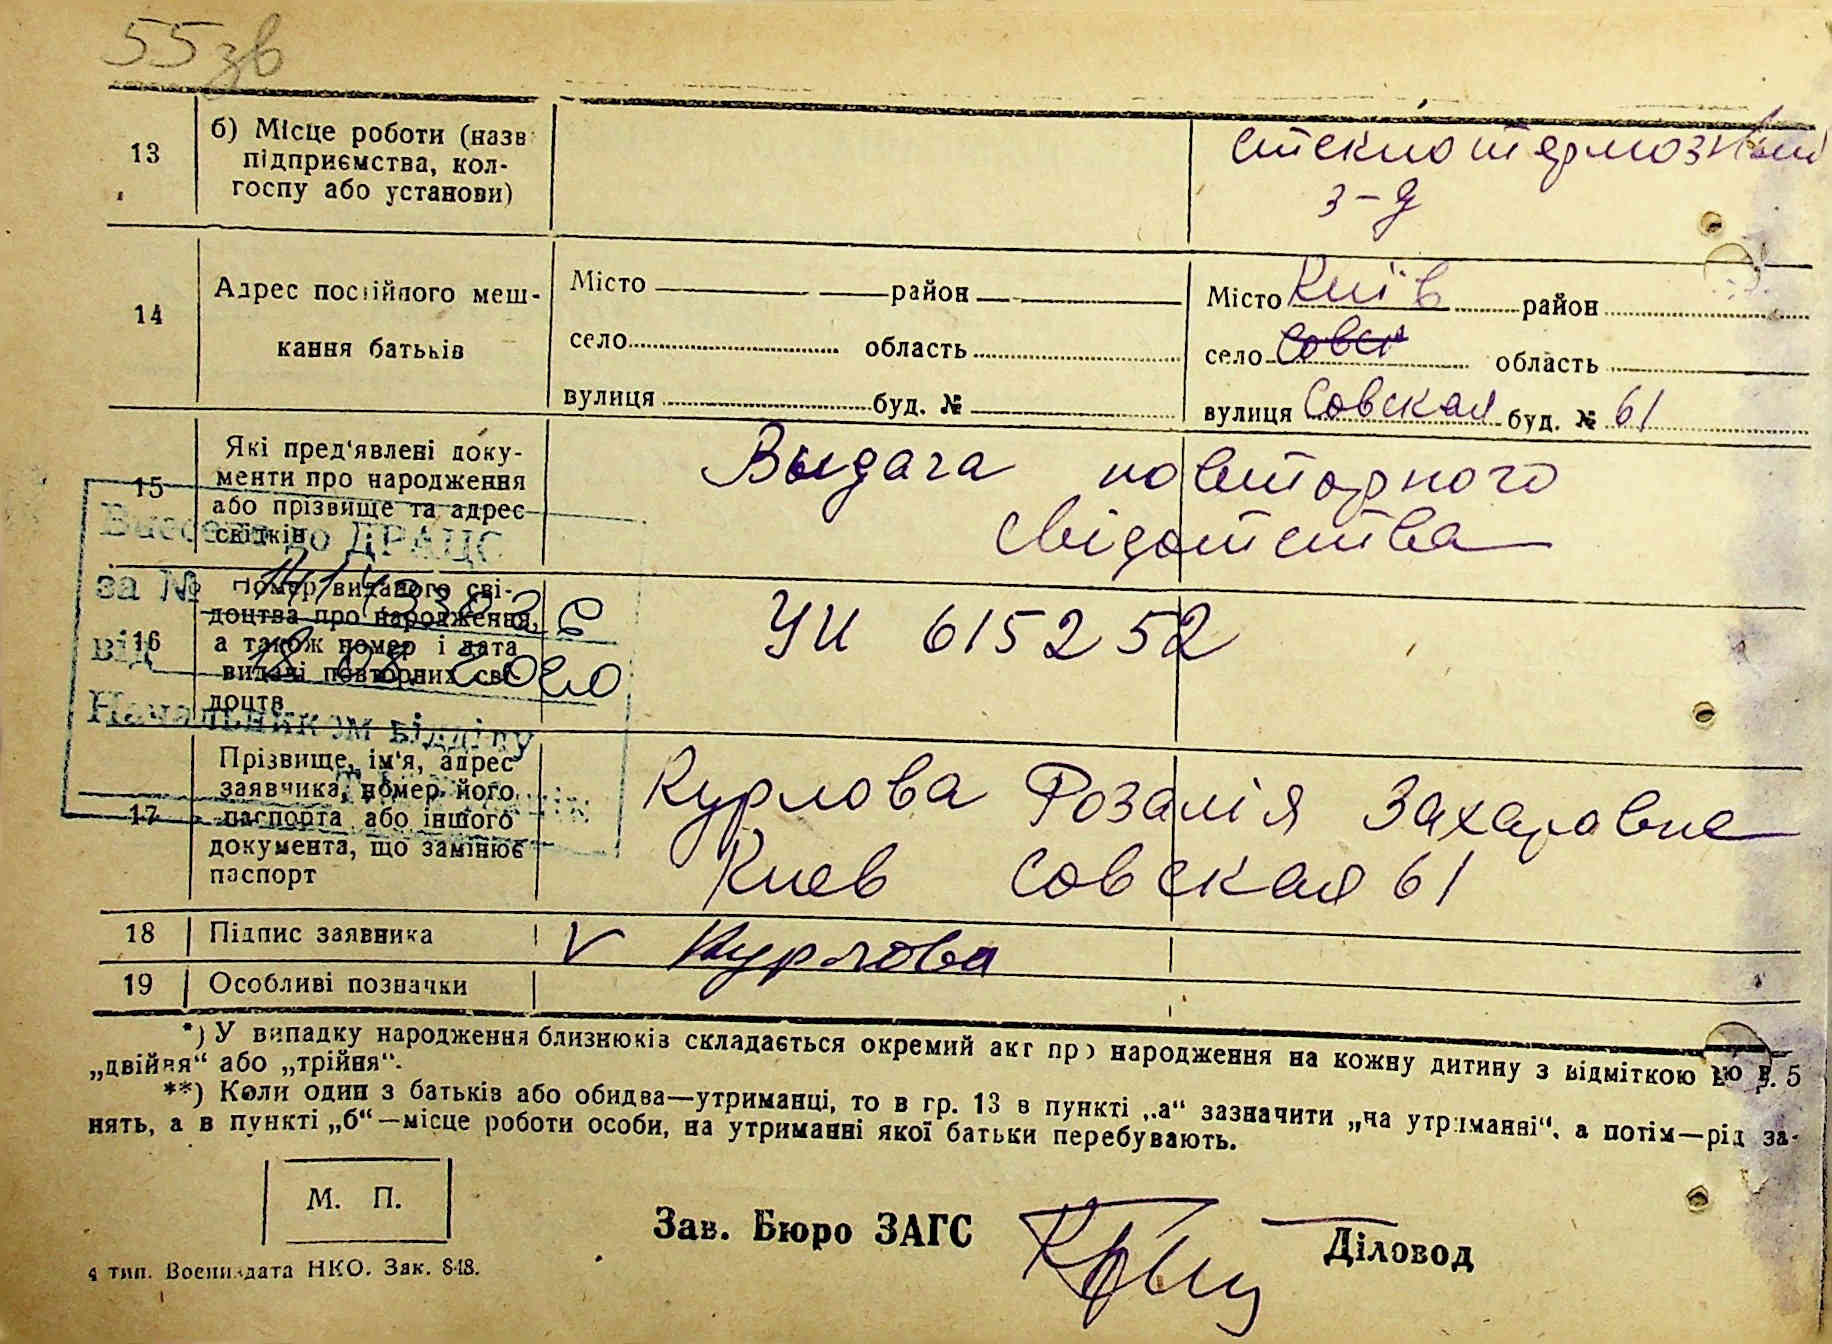 55 зв
13
б) Місце роботи (назв
підприємства, кол-
госпу або установи)
стеклотермозный
з-д
14
Адрес постійного меш-
кання батьків
Місто район
село область
вулиця буд. №
Місто Київ район
село Совск область
вулиця Совская буд. № 61
15
Які пред'явлені доку-
менти про народження
або прізвище та адрес
свідків
Выдача повторного
свідотства
16
Номер виданого сві-
доцтва про народження,
а також номер і дата
видачі повторних сві-
доцтв
УИ 615252
Внесено до ДРАЦС
за №
від 18.08.2020
Начальником відділу
17
Прізвище, ім'я, адрес
заявника, номер його
паспорта або іншого
документа, що замінює
паспорт
Курлова Розалія Захаровна
Киев Совская 61
18 Підпис заявника V Курлова
19 Особливі позначки
*) У випадку народження близнюків складається окремий акт про народження на кожну дитину з відміткою по р. 5
„двійня“ або „трійня“.
**) Коли один з батьків або обидва—утриманці, то в гр. 13 в пункті „а“ зазначити „на утриманні“, а потім—рід за-
нять, а в пункті „б“—місце роботи особи, на утриманні якої батьки перебувають.
М. П.
Зав. Бюро ЗАГС Діловод
4 тип. Воениздата НКО. Зак. 848.